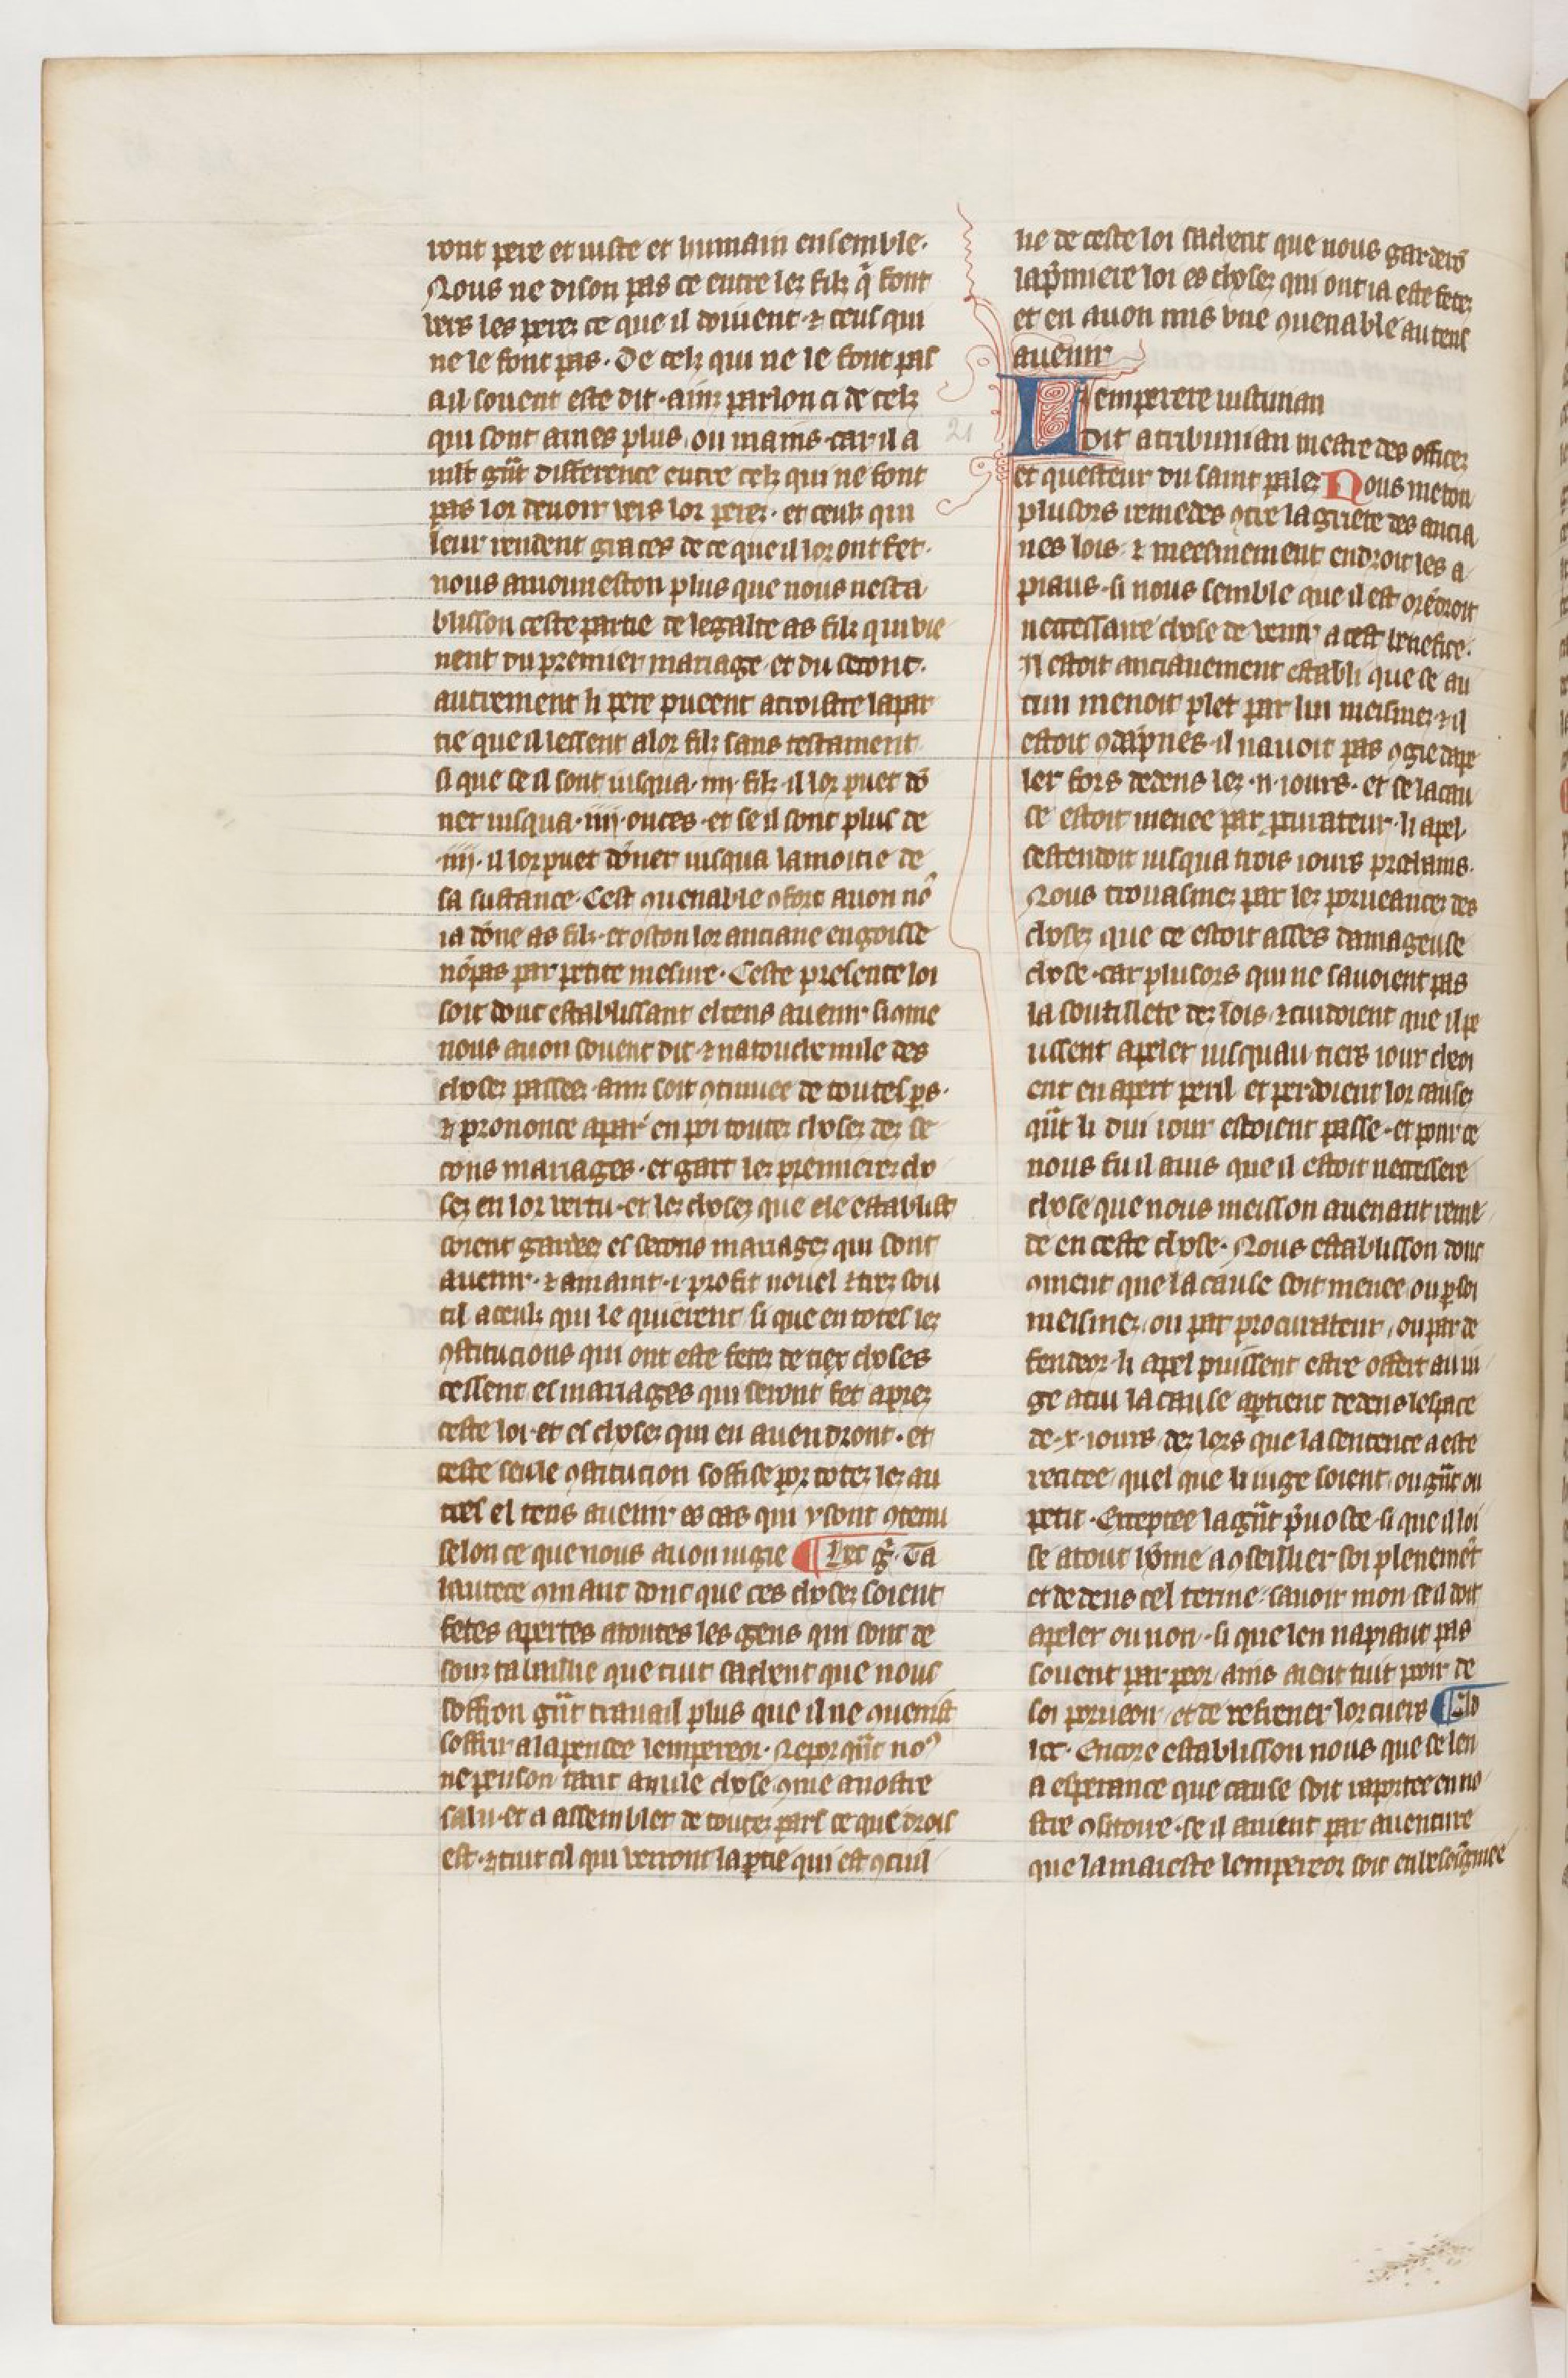 ront pere et iuste et humain ensemble.
Nous ne dison pas ce entre lez filz q̃ font
vers les perez ce que il doiuent ⁊ ceus qui
ne le font pas. De celz qui ne le font pas
a il souent este dit. ainz parlon ci de celz
qui font ames plus, ou mains. car il a
mlt grãt difference entre celz qui ne font
pas lor deuoir vers lor perez. et ceulz qui
leur rendent graces de ce que il lor ont fet.
nous amoneston plus que nous nesta
blisson ceste partie de legalte as filz qui vie
nent du premier mariage et du secont.
autrement li pere pueent acroistre la par
tie que il lessent a lor filz sans testament
si que se il sont iusqua .iiii. filz il lor puet dõ
ner iusqua .iiii. onces. et se il sont plus de
.iiii. il lor puet dõner iusqua la moitie de
sa sustance. Cest ꝯuenable ꝯfort auon nõ
ia dõne as filz. et oston lor anciane engoisse
nõpas par petite mesure. Ceste presente loi
soit dont establissant el tens auenir si ꝯme
nous auon souent dit ⁊ natouche nule des
chosez passeez. ainz soit ꝯtinuee de toutes ps.
⁊ prononce apar en poi toutez chosez dez se
cons mariages. et gart lez premierez cho
sez en lor vertu. et lez chosez que ele establist
soient gardeez es secons mariagez qui sont
auenir. ⁊ amaint .i. profit nouel ⁊ trez sou
til a ceulz qui le quierent si que en totes lez
ꝯstitucions qui ont este fetez de tiex choses
cessent es mariages qui seront fet aprez
ceste loi. et es chosez qui en auendront. et
ceste seule ꝯstitucion soffise por totez lez au
tres el tens auenir es cas qui y sont ꝯtenu
selon ce que nous auon iugie ¶ Lec g̃. Ta
hautece ꝯmant dont que ces chosez soient
fetes apertes a toutes les gens qui sont de
souz ta baillie que tuit sachent que nous
soffron grãt trauail plus que il ne ꝯuenist
soffrir a la pensee lempereor. Ne por quãt noꝰ
ne penson tant a nule chose ꝯme a nostre
salu. et a assembler de toutez pars ce que drois
est. ⁊ tuit cil qui verront la ꝑtie qui est ꝯtinil
ne de ceste loi sachent que nous garderõ
la p̃miere loi es chosez qui ont ia este fetez
et en auon mis vne ꝯuenable au tens
auenir
L emperere iustinian
dit a tribunian mestre des officez
et questeur du saint palez Nous meton
plusors remedes ꝯtre la griete des ancia
nes lois. ⁊ meesmement endroit les a
piaus. si nous semble que il est orẽdroit
necessaire chose de venir a cest benefice.
Il estoit ancianement establi que se au
cun menoit plet par lui meismez ⁊ il
estoit ꝯdãpnes. il nauoit pas ꝯgie dape
ler fors dedens lez .ii. iours. et se la cau
se estoit menee par ꝓcurateur. li apel.
sestendoit iusqua trois iours prochains.
Nous trouasmez par lez porueancez des
chosez que ce estoit asses damageuse
chose. car plusors qui ne sauoient pas
la soutillete dez lois. ⁊ cuidoient que il pe
ussent apeler iusquau tiers iour cheoi
ent en apert peril et perdoient lor causez
quãt li dui iour estoient passe. et pour ce
nous fu il auis que il estoit necessere
chose que nous meisson auenant reme
de en ceste chose. Nous establisson dont
ꝯment que la cause soit menee ou ꝑ soi
meismez, ou par procurateur, ou par de
fendeor. li apel puissent estre offert au iu
ge a cui la cause apartient dedens lespace
de .x. iours. dez lors que la sentence a este
recitee, quel que li iuge soient, ou grãt ou
petit. Exceptee la grãt p̃uoste. si que il loi
se a tout hõme a ꝯseillier soi plenemẽt
et dedens cel terme. sauoir mon se il doit
apeler ou non. si que len napiaut pas
souent par peor, ains aient tuit poir de
soi porueon, et de refrener lor cuers ¶ Lo
ier. Encore establisson nous que se len
a esperance que cause soit raportee en no
stre ꝯsitoire. se il auient par auenture
que la maieste lempereor soit enbesoignniee
21